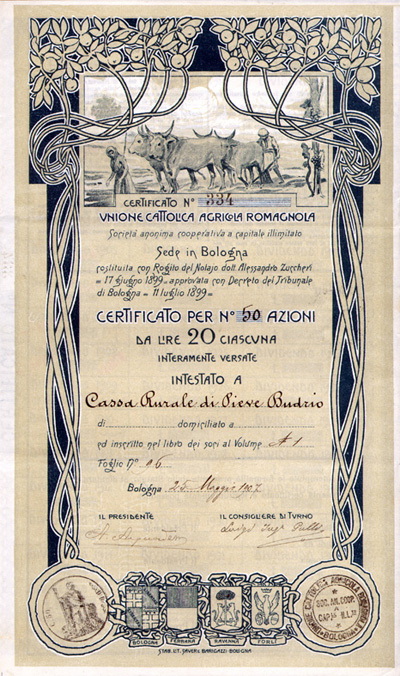 CERTIFICATO N° 334
VNIONE CATTOLICA AGRICOLA ROMAGNOLA
Società anonima cooperativa a capitale illimitato
Sede in Bologna
costituita con Rogito del Notajo dott. Alessandro Zuccheri
= 17 giugno 1899 = approvata con Decreto del Tribunale
di Bologna = 11 luglio 1899 =
CERTIFICATO PER N° 50 AZIONI
DA LIRE 20 CIASCUNA
INTERAMENTE VERSATE
INTESTATO A
Cassa Rurale di Pieve Budrio
di domiciliato a
ed inscritto nel libro dei soci al Volume A 1
Foglio N° 96
Bologna 25 Maggio 1907
IL PRESIDENTE IL CONSIGLIERE DI TVRNO
Luigi Ing.
BOLOGNA FERRARA RAVENNA FORLÌ
SOC. AN. COOP.
STAB. LIT. SAVERI BARIGAZZI - BOLOGNA